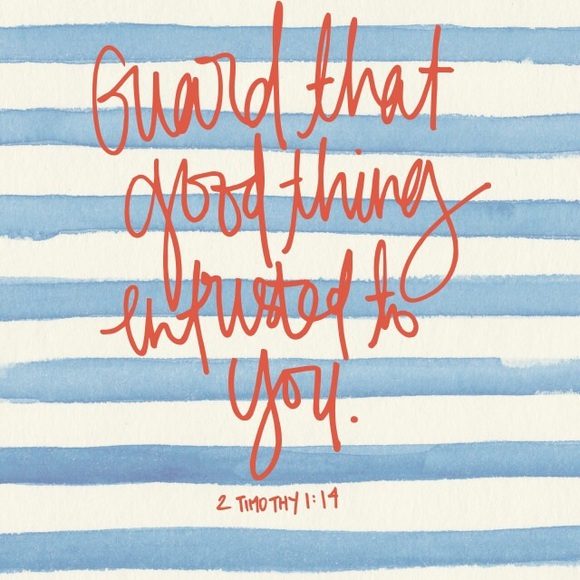 Guard that
good thing
entrusted to
you.
2 TIMOTHY 1:14